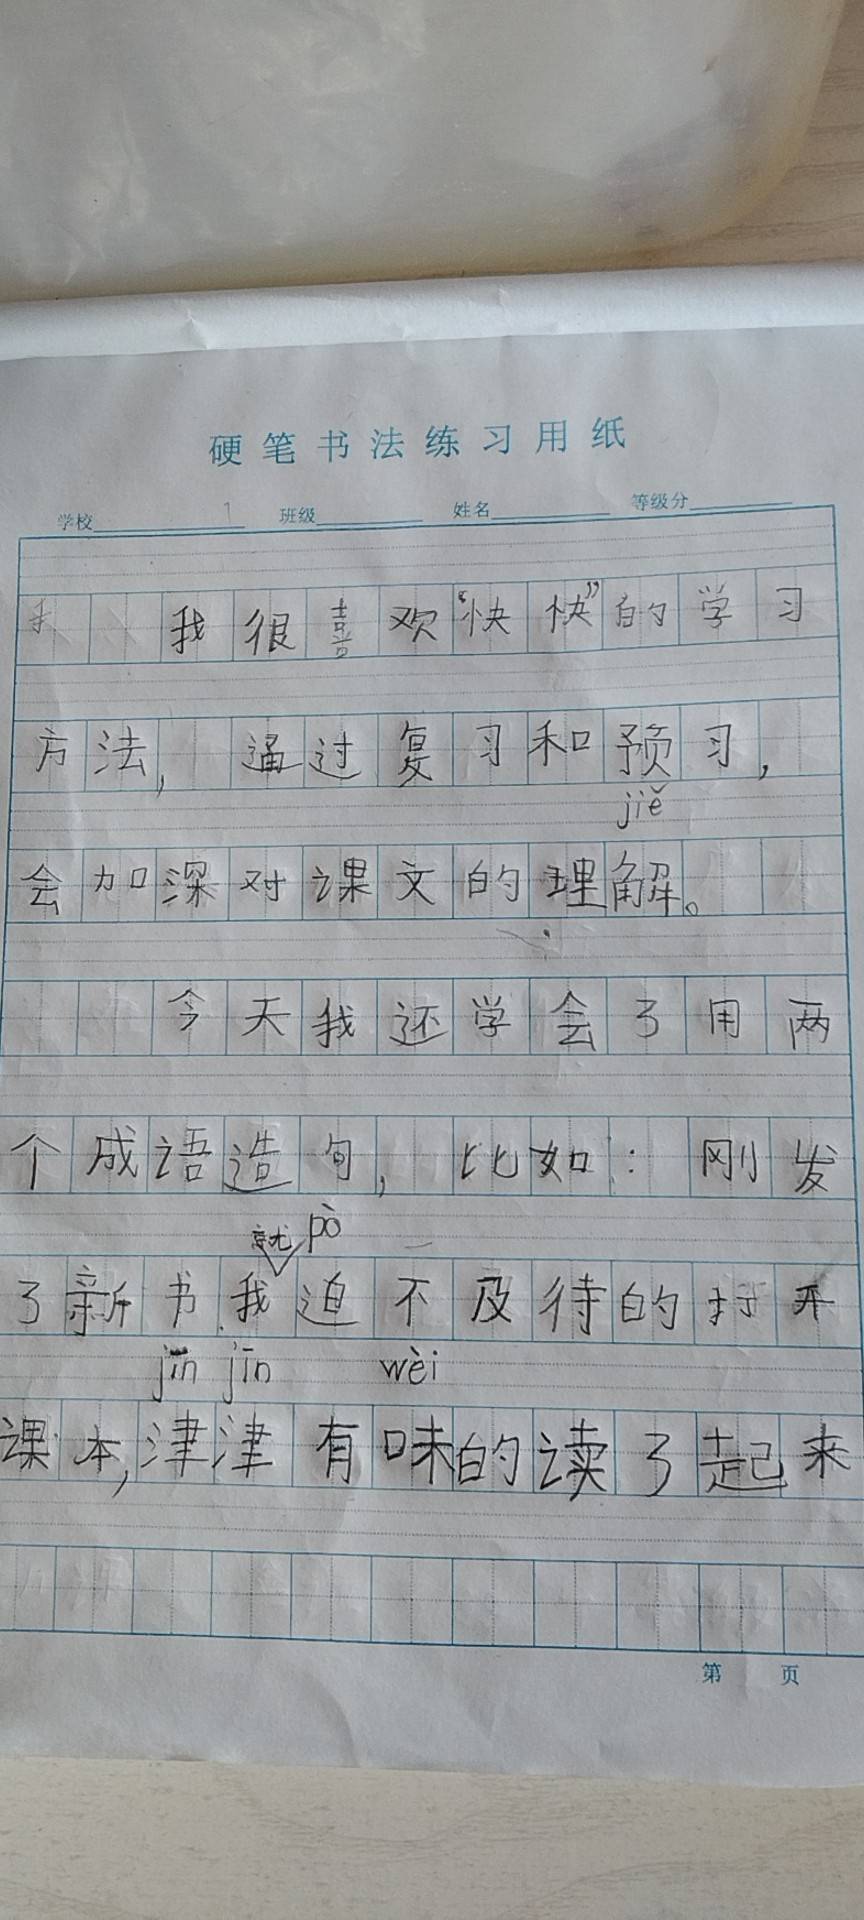 硬笔书法练习用纸
学校 班级 姓名 等级分
我很喜欢“快快”的学习
方法，通过复习和预习，
jiě
会加深对课文的理解。
今天我还学会了用两
个成语造句，比如：刚发
就 pò
了新书我迫不及待的打开
jīn jīn wèi
课本，津津有味的读了起来
第 页